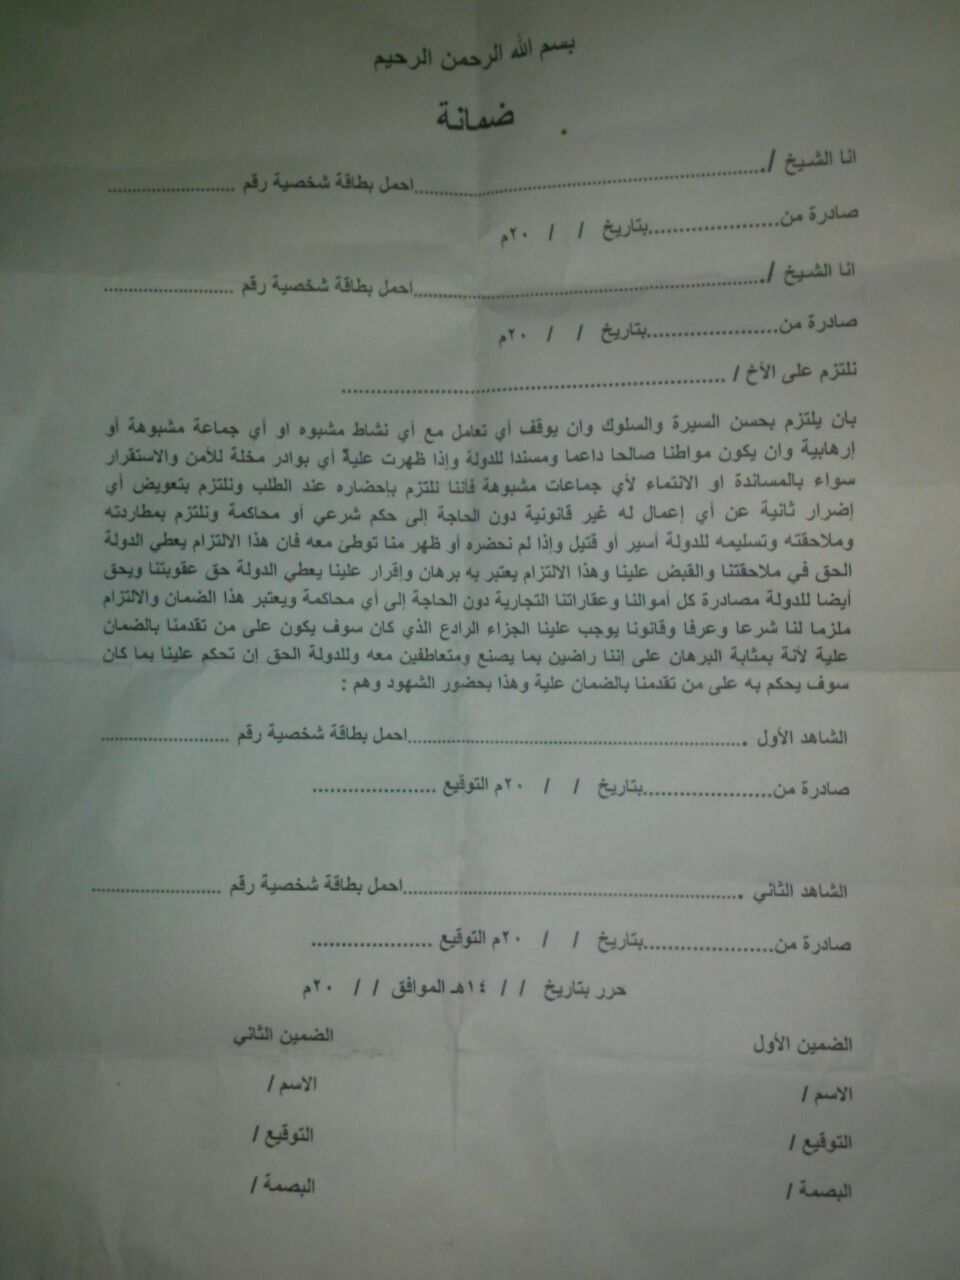 بسم الله الرحمن الرحيم
ضمانة
انا الشيخ /.......................................................احمل بطاقة شخصية رقم ......................
صادرة من......................بتاريخ / / ٢٠م
انا الشيخ /.......................................................احمل بطاقة شخصية رقم ......................
صادرة من......................بتاريخ / / ٢٠م
نلتزم على الأخ / ................................................................
بان يلتزم بحسن السيرة والسلوك وان يوقف أي تعامل مع أي نشاط مشبوه او أي جماعة مشبوهة أو
إرهابية وان يكون مواطنا صالحا داعما ومسندا للدولة وإذا ظهرت علية أي بوادر مخلة للأمن والاستقرار
سواء بالمساندة او الانتماء لأي جماعات مشبوهة فأننا نلتزم بإحضاره عند الطلب ونلتزم بتعويض أي
إضرار ثانية عن أي إعمال له غير قانونية دون الحاجة إلى حكم شرعي أو محاكمة ونلتزم بمطاردته
وملاحقته وتسليمه للدولة أسير أو قتيل وإذا لم نحضره أو ظهر منا توطئ معه فان هذا الالتزام يعطي الدولة
الحق في ملاحقتنا والقبض علينا وهذا الالتزام يعتبر به برهان وإقرار علينا يعطي الدولة حق عقوبتنا ويحق
أيضا للدولة مصادرة كل أموالنا وعقاراتنا التجارية دون الحاجة إلى أي محاكمة ويعتبر هذا الضمان والالتزام
ملزما لنا شرعا وعرفا وقانونا يوجب علينا الجزاء الرادع الذي كان سوف يكون على من تقدمنا بالضمان
علية لأنة بمثابة البرهان على إننا راضين بما يصنع ومتعاطفين معه وللدولة الحق إن تحكم علينا بما كان
سوف يحكم به على من تقدمنا بالضمان علية وهذا بحضور الشهود وهم :
الشاهد الأول .......................................................احمل بطاقة شخصية رقم ......................
صادرة من......................بتاريخ / / ٢٠م التوقيع .....................
الشاهد الثاني .......................................................احمل بطاقة شخصية رقم ......................
صادرة من......................بتاريخ / / ٢٠م التوقيع .....................
حرر بتاريخ / / ١٤هـ الموافق / / ٢٠م
الضمين الأول الضمين الثاني
الاسم / الاسم /
التوقيع / التوقيع /
البصمة / البصمة /